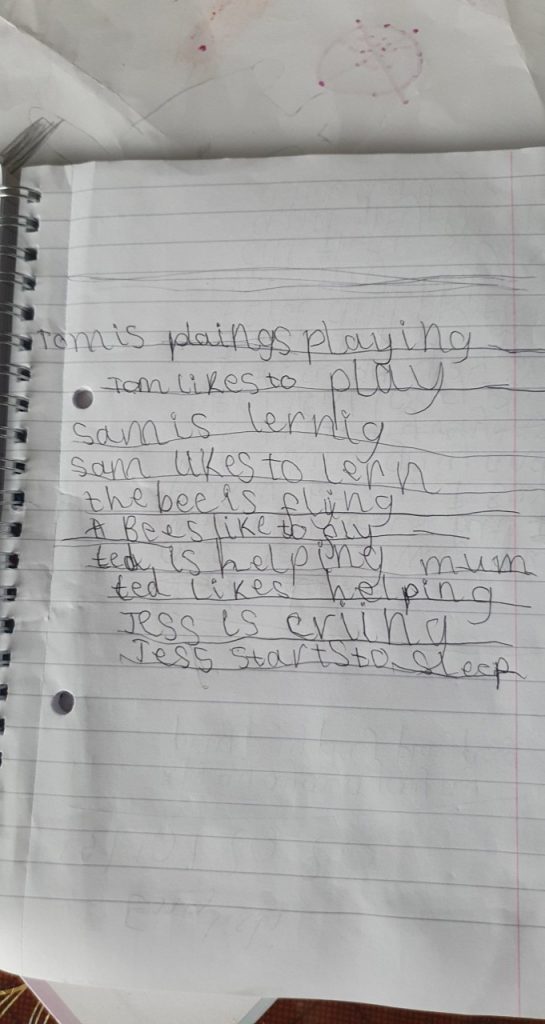 Tom is plaings playing
Tom likes to play
sam is lernig
sam likes to lern
the bee is flying
A Bees like to fly
ted is helping mum
ted likes helping
Jess is criing
Jess starts to sleep